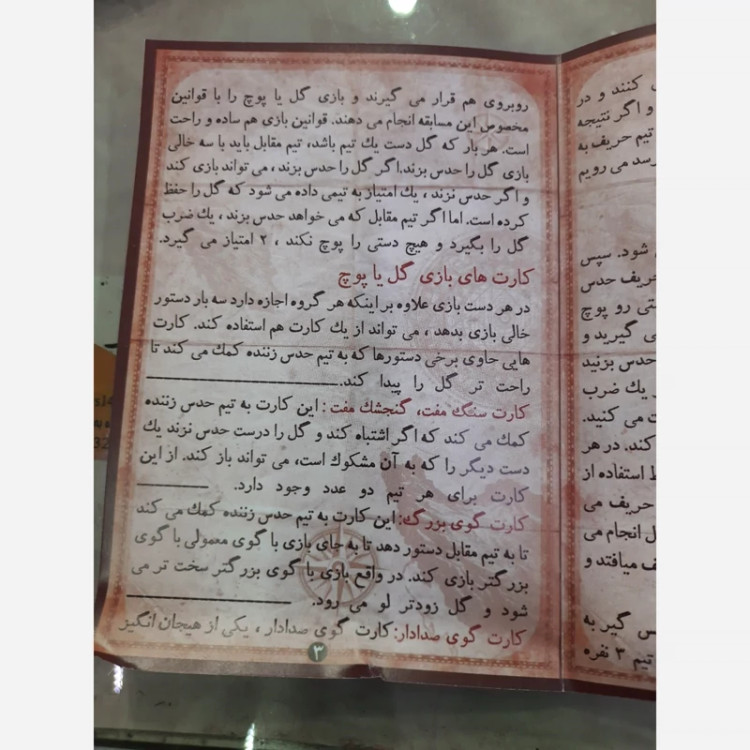 روبروی هم قرار می گیرند و بازی گل یا پوچ را با قوانین
مخصوص این مسابقه انجام می دهند. قوانین بازی هم ساده و راحت
است. هر بار که گل دست یک تیم باشد، تیم مقابل باید با سه خالی
بازی گل را حدس بزند.اگر گل را حدس بزند، می تواند بازی کند
و اگر حدس نزند، یک امتیاز به تیمی داده می شود که گل را حفظ
کرده است. اما اگر تیم مقابل که می خواهد حدس بزند، یک ضرب
گل را بگیرد و هیچ دستی را پوچ نکند ، ۲ امتیاز می گیرد.
کارت های بازی گل یا پوچ
در هر دست بازی علاوه بر اینکه هر گروه اجازه دارد سه بار دستور
خالی بازی بدهد ، می تواند از یک کارت هم استفاده کند. کارت
هایی حاوی برخی دستورها که به تیم حدس زننده کمک می کند تا
راحت تر گل را پیدا کند.
کارت سنگ مفت، گنجشک مفت : این کارت به تیم حدس زننده
کمک می کند که اگر اشتباه کند و گل را درست حدس نزند یک
دست دیگر را که به آن مشکوک است، می تواند باز کند. از این
کارت برای هر تیم دو عدد وجود دارد.
کارت گوی بزرگ: این کارت به تیم حدس زننده کمک می کند
تا به تیم مقابل دستور دهد تا به جای بازی با گوی معمولی با گوی
بزرگتر بازی کند. در واقع بازی با گوی بزرگتر سخت تر می
شود و گل زودتر لو می رود.
کارت گوی صدادار: کارت گوی صدادار ، یکی از هیجان انگیز
۳
کنند و در
و اگر نتیجه
تیم حریف به
رسد می رویم
شود. سپس
حریف حدس
ستی رو پوچ
گیرید و
حدس بزنید
یک ضرب
ت می کنید.
کند. در هر
استفاده از
حریف می
انجام می
ف میافتد و
س گیر به
تیم ۳ نفره